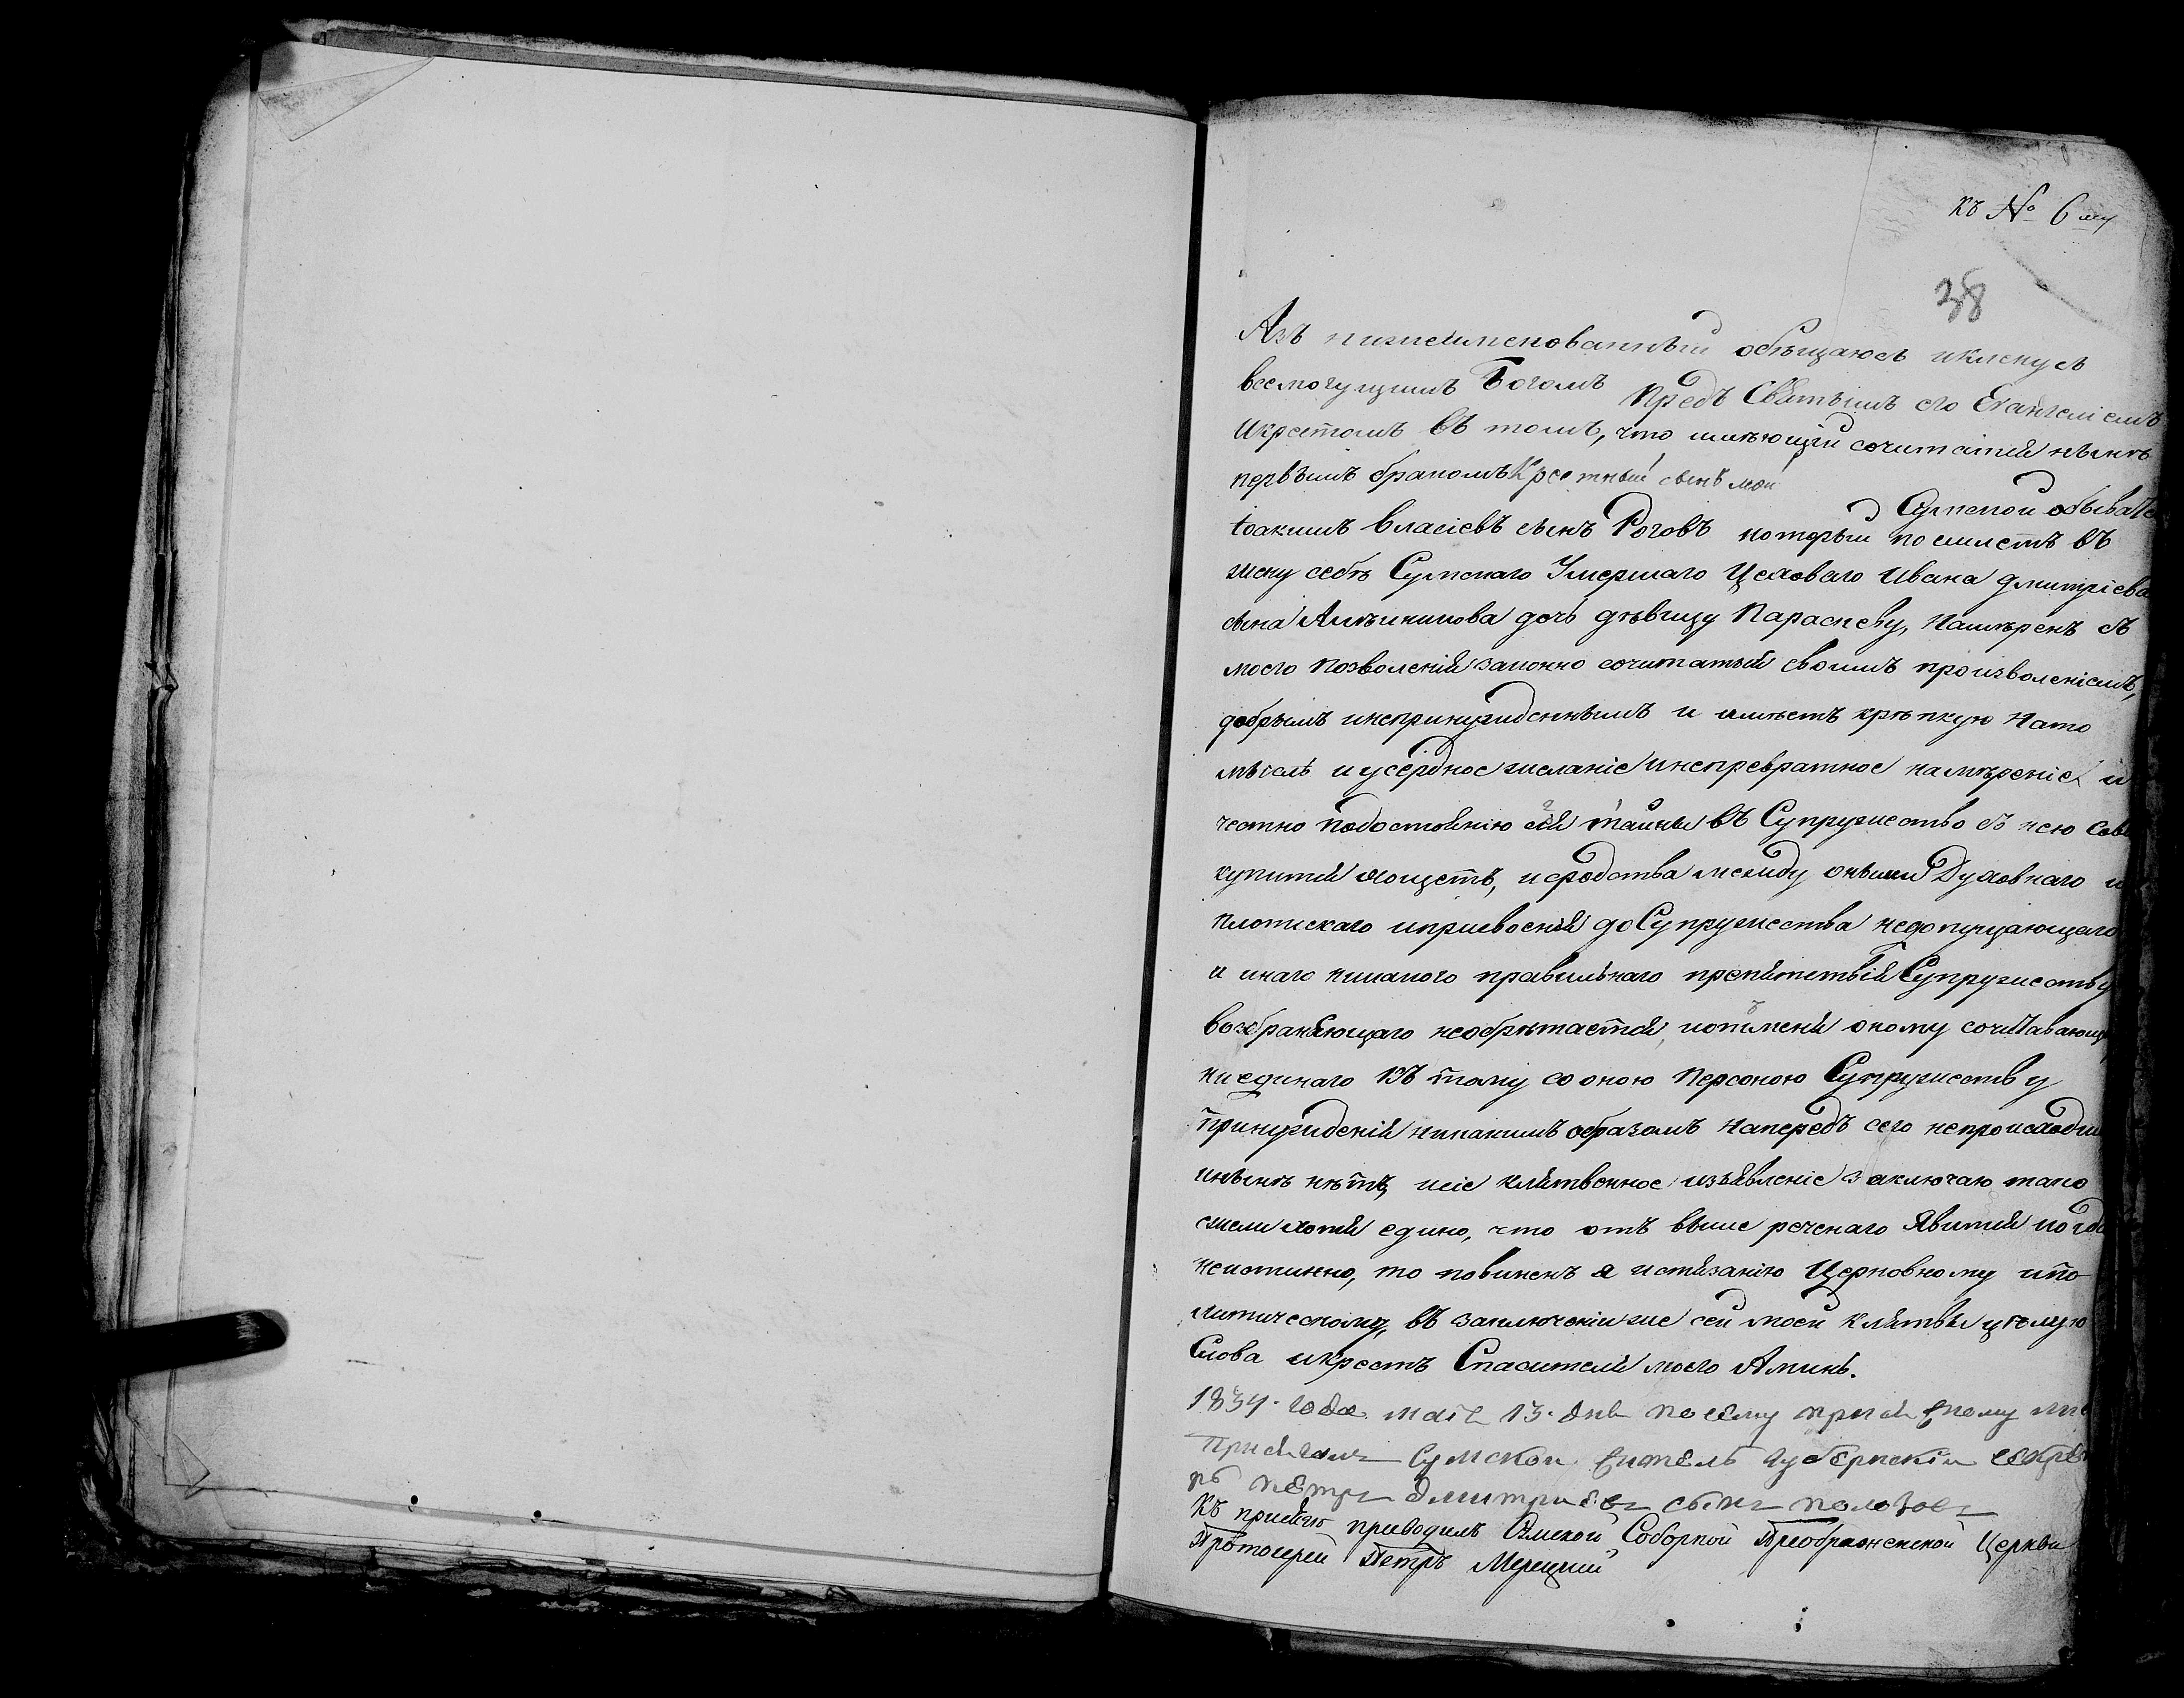 Къ № 6му
38
Азъ нижеименованный обѣщаюсь икленусь
всемогущимъ Богомъ Предъ Святымъ его Евангеліемъ
Икрестомъ въ томъ, что имѣющій сочитатися нынѣ
первымъ бракомъ Крестный сынъ мой
Сумской обывате
Іоакимъ Власіевъ сынъ Роговъ который поемлетъ въ
жену себѣ Сумскаго Умершаго Цеховаго Ивана дмитріева
сына дочь дѣвицу Параскеву, Намѣренъ съ
моего Позволенія законно сочитатися своимъ произволеніемъ,
добрымъ инепринужденнымъ и имѣетъ крѣпкую Нато
мысль и усердное желаніе инепревратное намѣреніе и
честно Подостоинію сея таины въ Супружество съ нею Сово
купитися хощетъ, исродства между оными Духовнаго и
плотскаго иприсвоенія до Супружества недопущающаго
и инаго никакого правильнаго препятствія Супружеству
возбраняющаго необрѣтается, оному сочитавающ
ниединаго къ тому со оною Персоною Супружеству
Принужденія никакимъ образомъ Напередъ сего непроисходи
инынѣ нѣтъ, исіе клятвенное изъявленіе заключаю тако
ежели хотя едино, что отъ выше реченаго Явится когда
неистинно, то повиненъ я истязанію Церковному ипо
литическому, въ заключеніиже сей моей клятвы цѣлую
Слова икрестъ Спасителя моего Аминь.
1834. года маія 13. дня посему присяжному лис
Присягалъ Сумской житель Губернскій секрет
рь петръ дмитріевъ сынъ
Къ присягѣ приводилъ Сумской Соборной Преображенской Церкви
Протоіерей Петръ